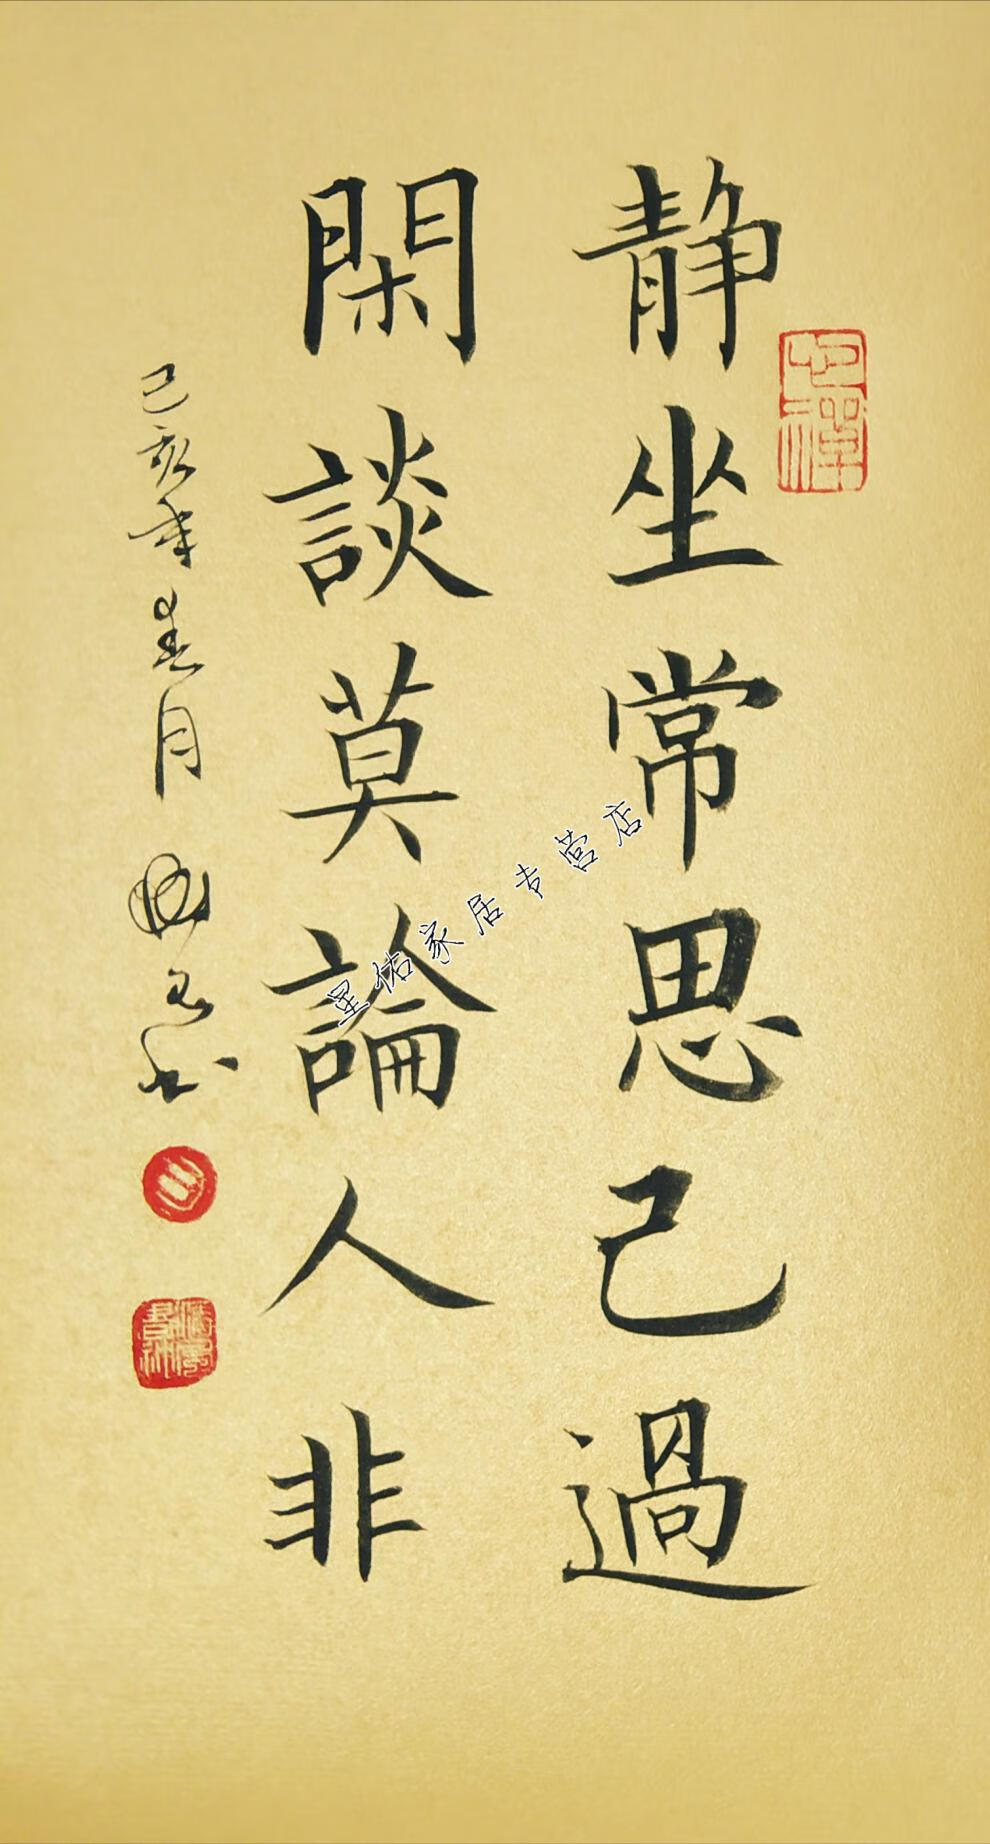 静坐常思己過
閑談莫論人非
己亥年春月
星佑家居专营店